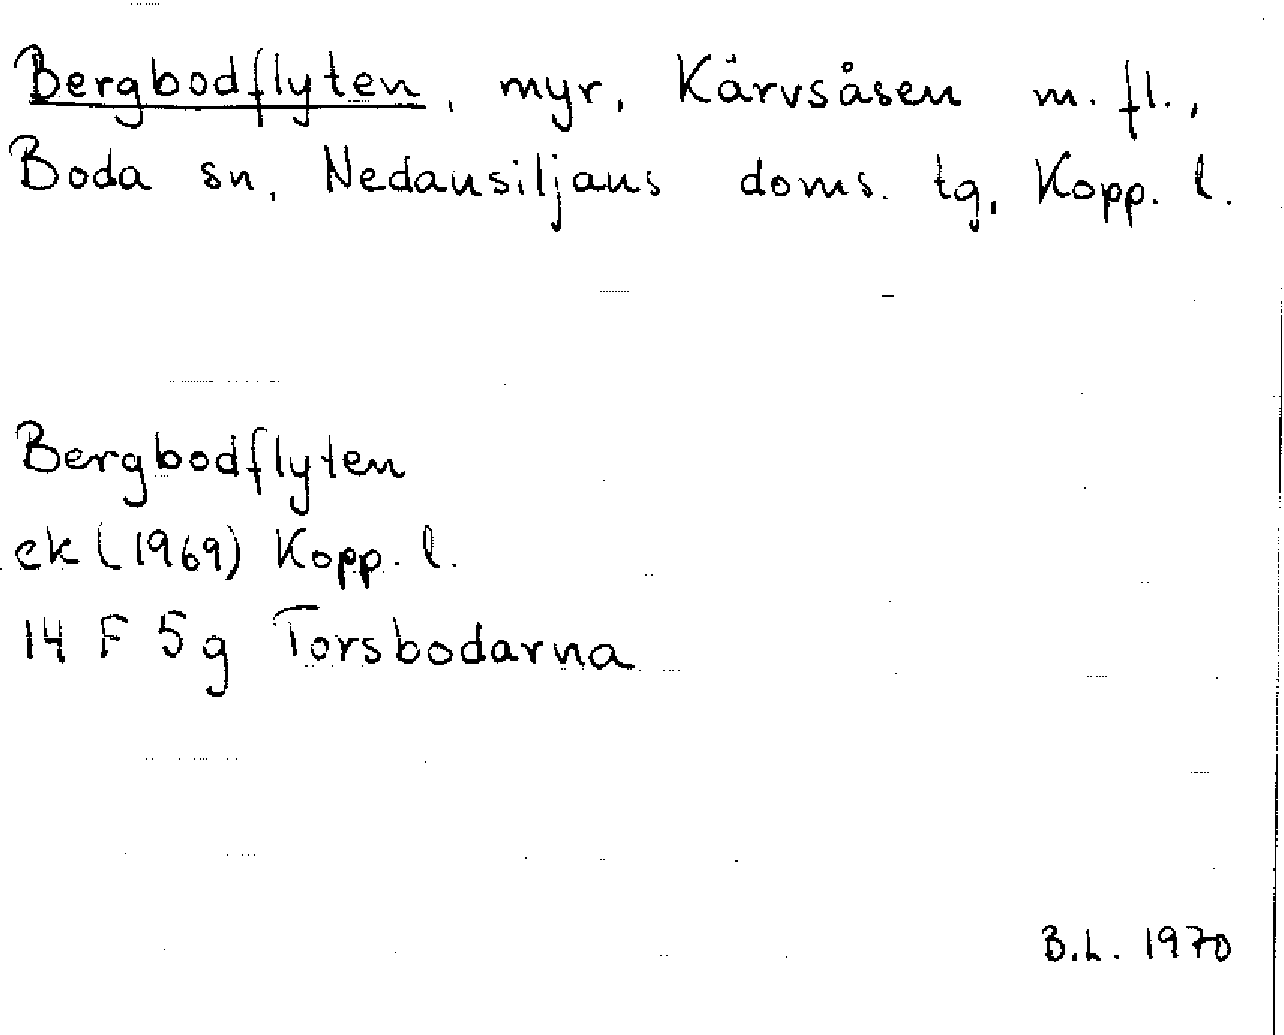 Bergbodflyten, myr, Kärvsåsen m. fl.,
Boda sn, Nedansiljans doms. tg, Kopp. l.
Bergbodflyten
ek (1969) Kopp. l.
14 F 5g Torsbodarna
B.L. 1970